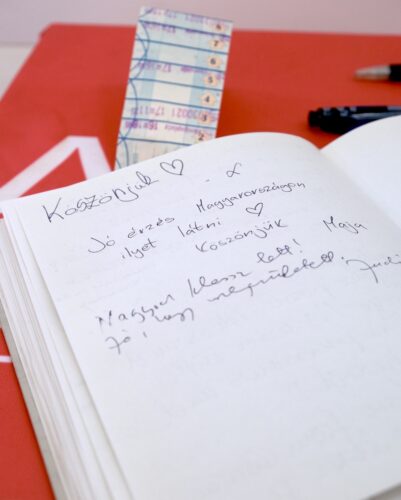 Köszönjük ♡
Jó érzés Magyarországon
ilyet látni ♡
Köszönjük Maja
Nagyon klassz lett!
Jó, hogy megszületett!
Judi
8
7
6
5
4
3
2